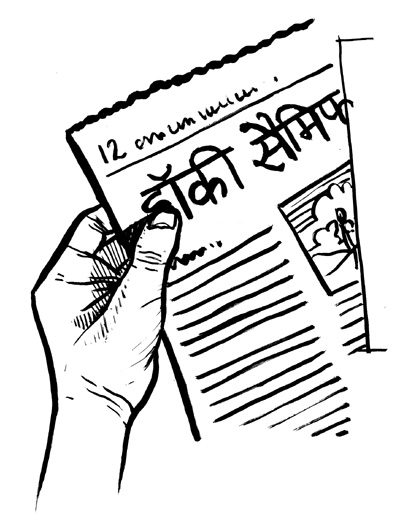 12
हॉकी सैमिफ